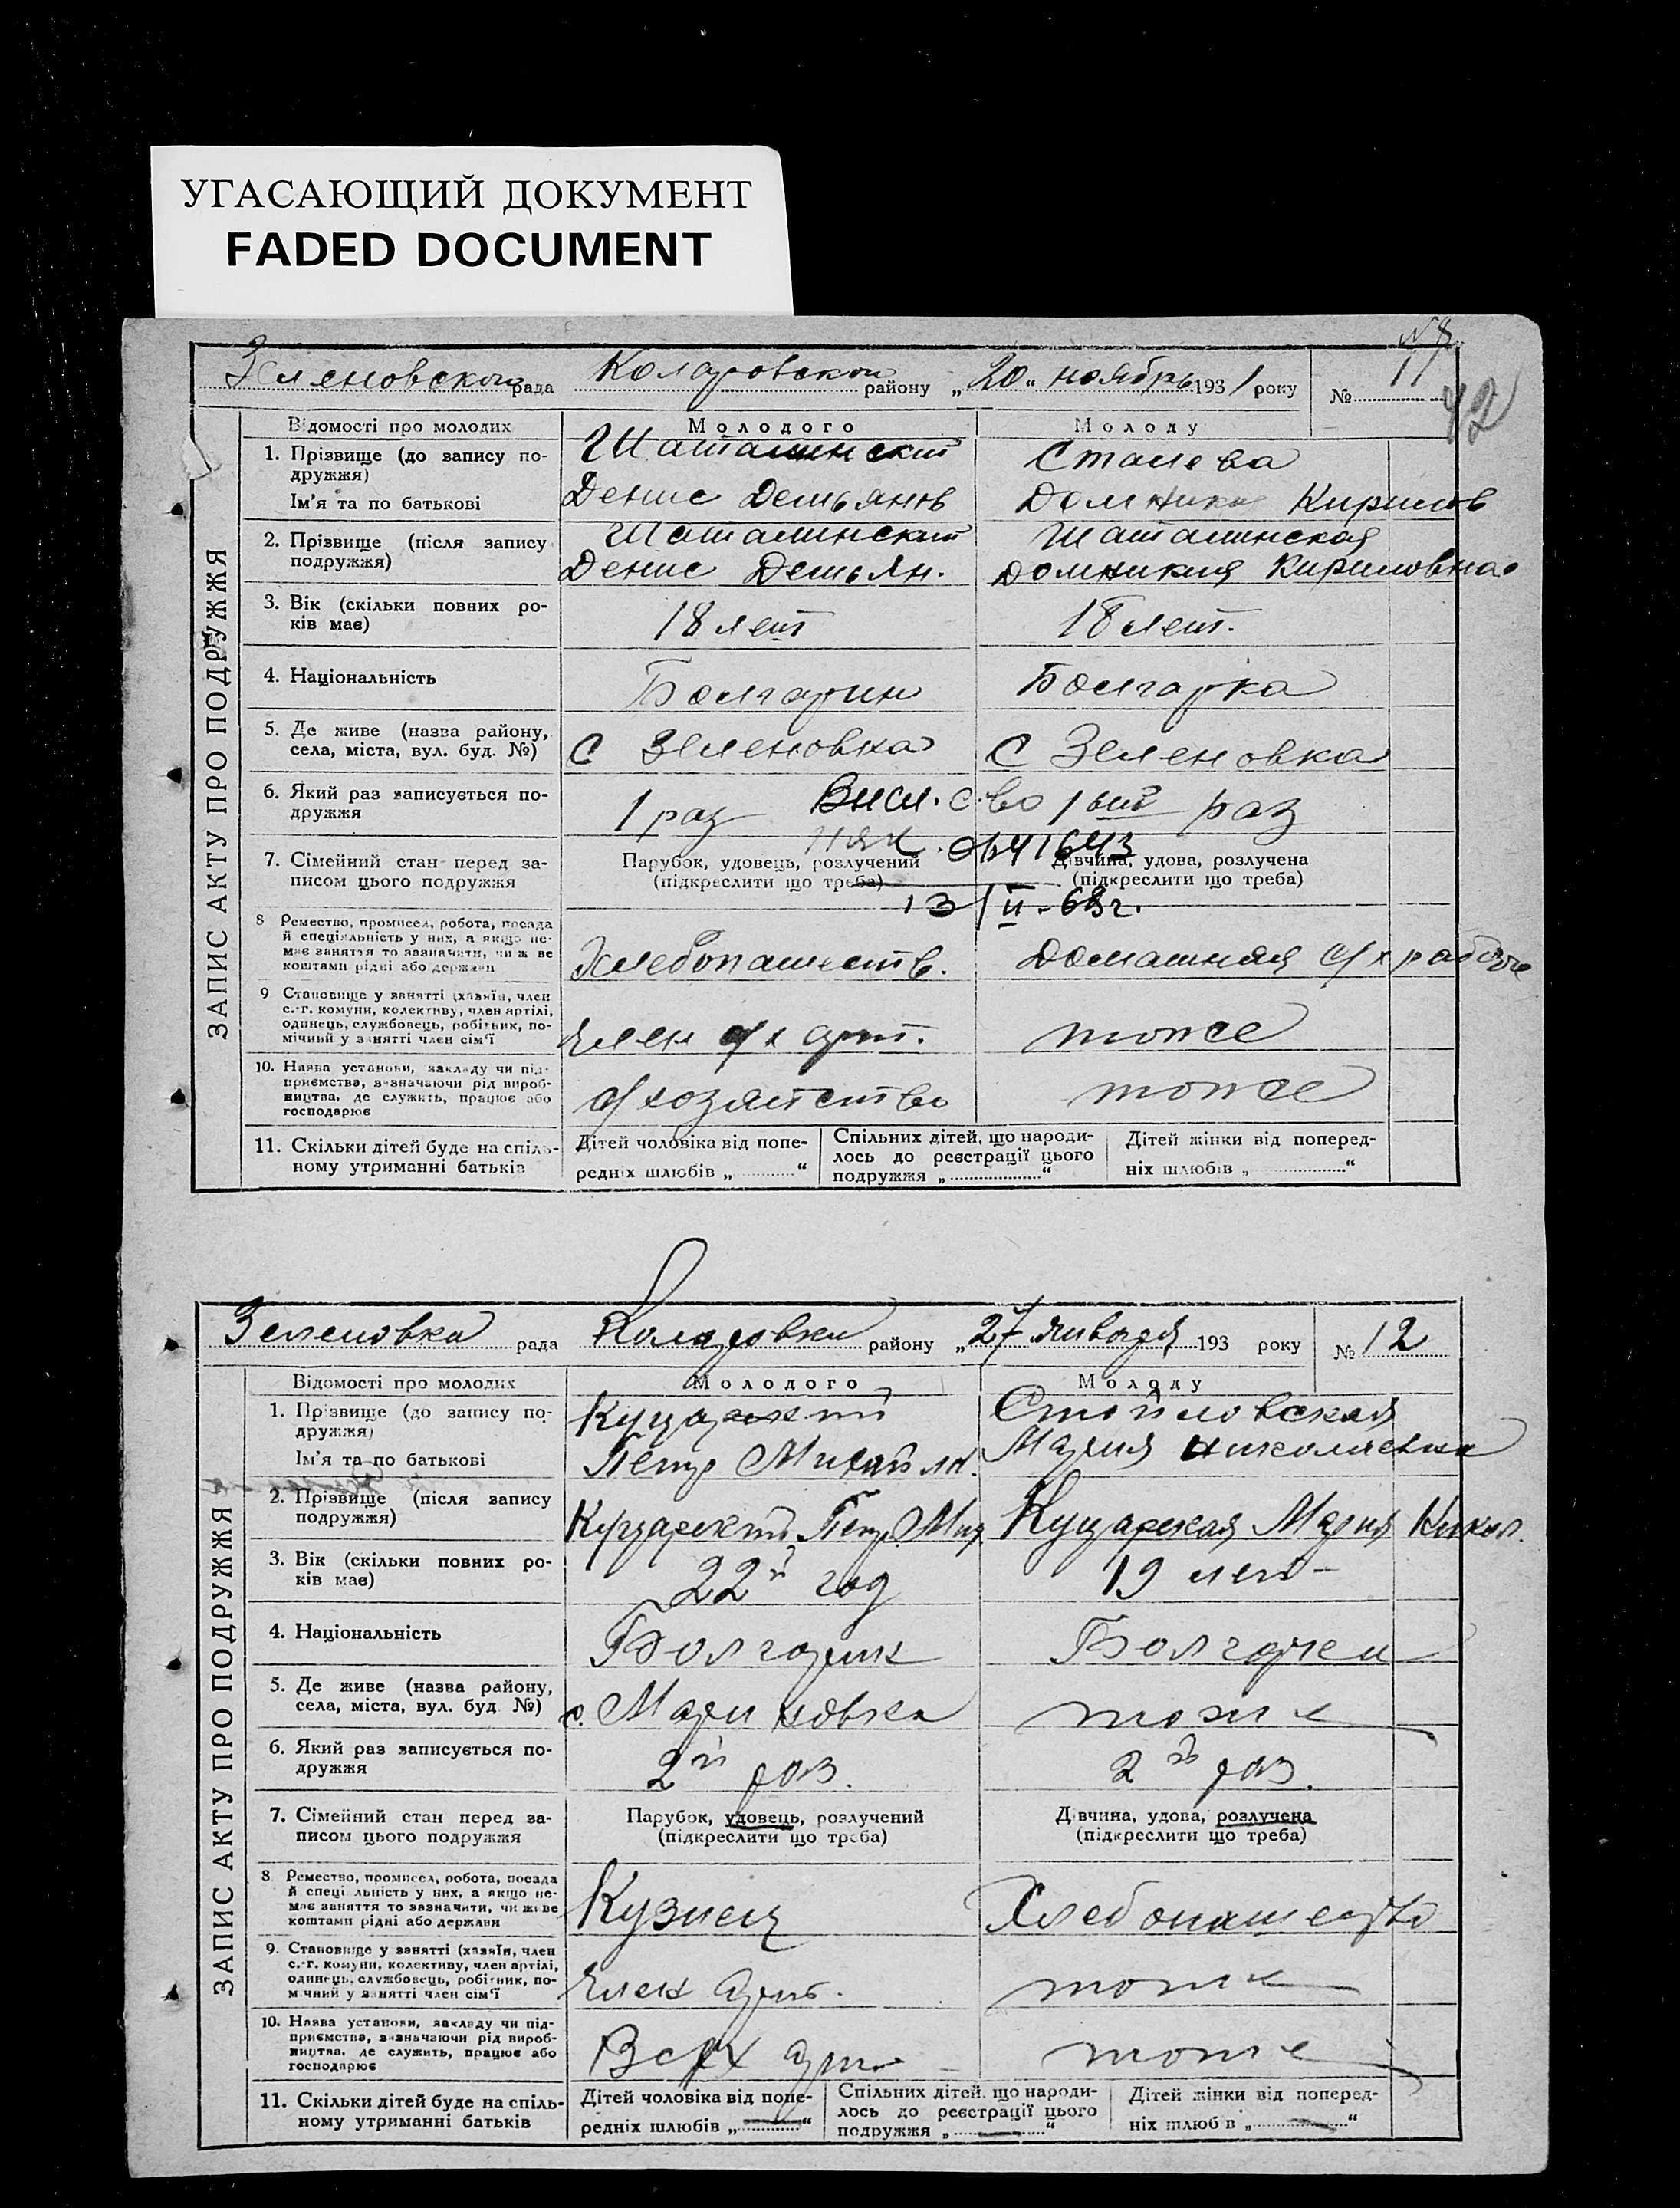 УГАСАЮЩИЙ ДОКУМЕНТ
FADED DOCUMENT
42
Зеленовской рада Коларовской району „20“ ноябрь 1931 року № 11
ЗАПИС АКТУ ПРО ПОДРУЖЖЯ
Відомості про молодих
Молодого
Молоду
1. Прізвище (до запису по-
дружжя)
Ім'я та по батькові
Шаталинский
Денис Демьянов
Станева
Домникия Кирилов
2. Прізвище (після запису
подружжя)
Шаталинский
Денис Демьян.
Шаталинская
Домникия Кириловна
3. Вік (скільки повних ро-
ків має)
18 лет
18 лет.
4. Національність
Болгарин
Болгарка
5. Де живе (назва району,
села, міста, вул. буд. №)
С Зеленовка
С Зеленовка
6. Який раз записується по-
дружжя
1 раз
1ый раз
Высл. с-во
41643
13/II-69г.
7. Сімейний стан перед за-
писом цього подружжя
Парубок, удовець, розлучений
(підкреслити що треба)
Дівчина, удова, розлучена
(підкреслити що треба)
8 Ремество, промисел, робота, посада
й спеціяльність у них, а якщо не-
має заняття то зазначити, чи ж ве
коштами рідні або держави
Хлебопашеств.
Домашняя с/х работе
9 Становище у занятті (хазяїн, член
с.-г. комуни, колективу, член артілі,
одинець, службовець, робітник, по-
мічний у занятті член сім'ї
Член с/х арт.
тоже
10. Назва установи, закладу чи під-
приємства, зазначаючи рід вироб-
ництва, де служить, працює або
господарює
с/хозяйство
тоже
11. Скільки дітей буде на спіль-
ному утриманні батьків
Дітей чоловіка від попе-
редніх шлюбів „ “
Спільних дітей, що народи-
лось до реєстрації цього
подружжя „ “
Дітей жінки від поперед-
ніх шлюбів „ “
Зеленовка рада Коларовка району „27 января 193 року № 12
ЗАПИС АКТУ ПРО ПОДРУЖЖЯ
Відомості про молодих
Молодого
Молоду
1. Прізвище (до запису по-
дружжя)
Ім'я та по батькові
Куцарский
Петр Михайл.
Стойловская
Мария Николаевна
2. Прізвище (після запису
подружжя)
Куцарский Петр Мих.
Куцарская Мария Никол.
3. Вік (скільки повних ро-
ків має)
22й год
19 лет-
4. Національність
Болгарин
Болгарка
5. Де живе (назва району,
села, міста, вул. буд №)
с. Мариновка
тоже
6. Який раз записується по-
дружжя
2й раз.
2й раз.
7. Сімейний стан перед за-
писом цього подружжя
Парубок, удовець, розлучений
(підкреслити що треба)
Дівчина, удова, розлучена
(підкреслити що треба)
8 Ремество, промисел, робота, посада
й спеціяльність у них, а якщо не-
має заняття то зазначити, чи живе
коштами рідні або держави
Кузнец
Хлебопашество
9. Становище у занятті (хазяїн, член
с.-г. комуни, колективу, член артілі,
одинець, службовець, робітник, по-
мічний у занятті член сім'ї
Член арт.
тоже
10. Назва установи, закладу чи під-
приємства, зазначаючи рід вироб-
ництва, де служить, працює або
господарює
В с/х арт.
тоже
11. Скільки дітей буде на спіль-
ному утриманні батьків
Дітей чоловіка від попе-
редніх шлюбів „ — “
Спільних дітей, що народи-
лось до реєстрації цього
подружжя „ — “
Дітей жінки від поперед-
ніх шлюбів „ — “